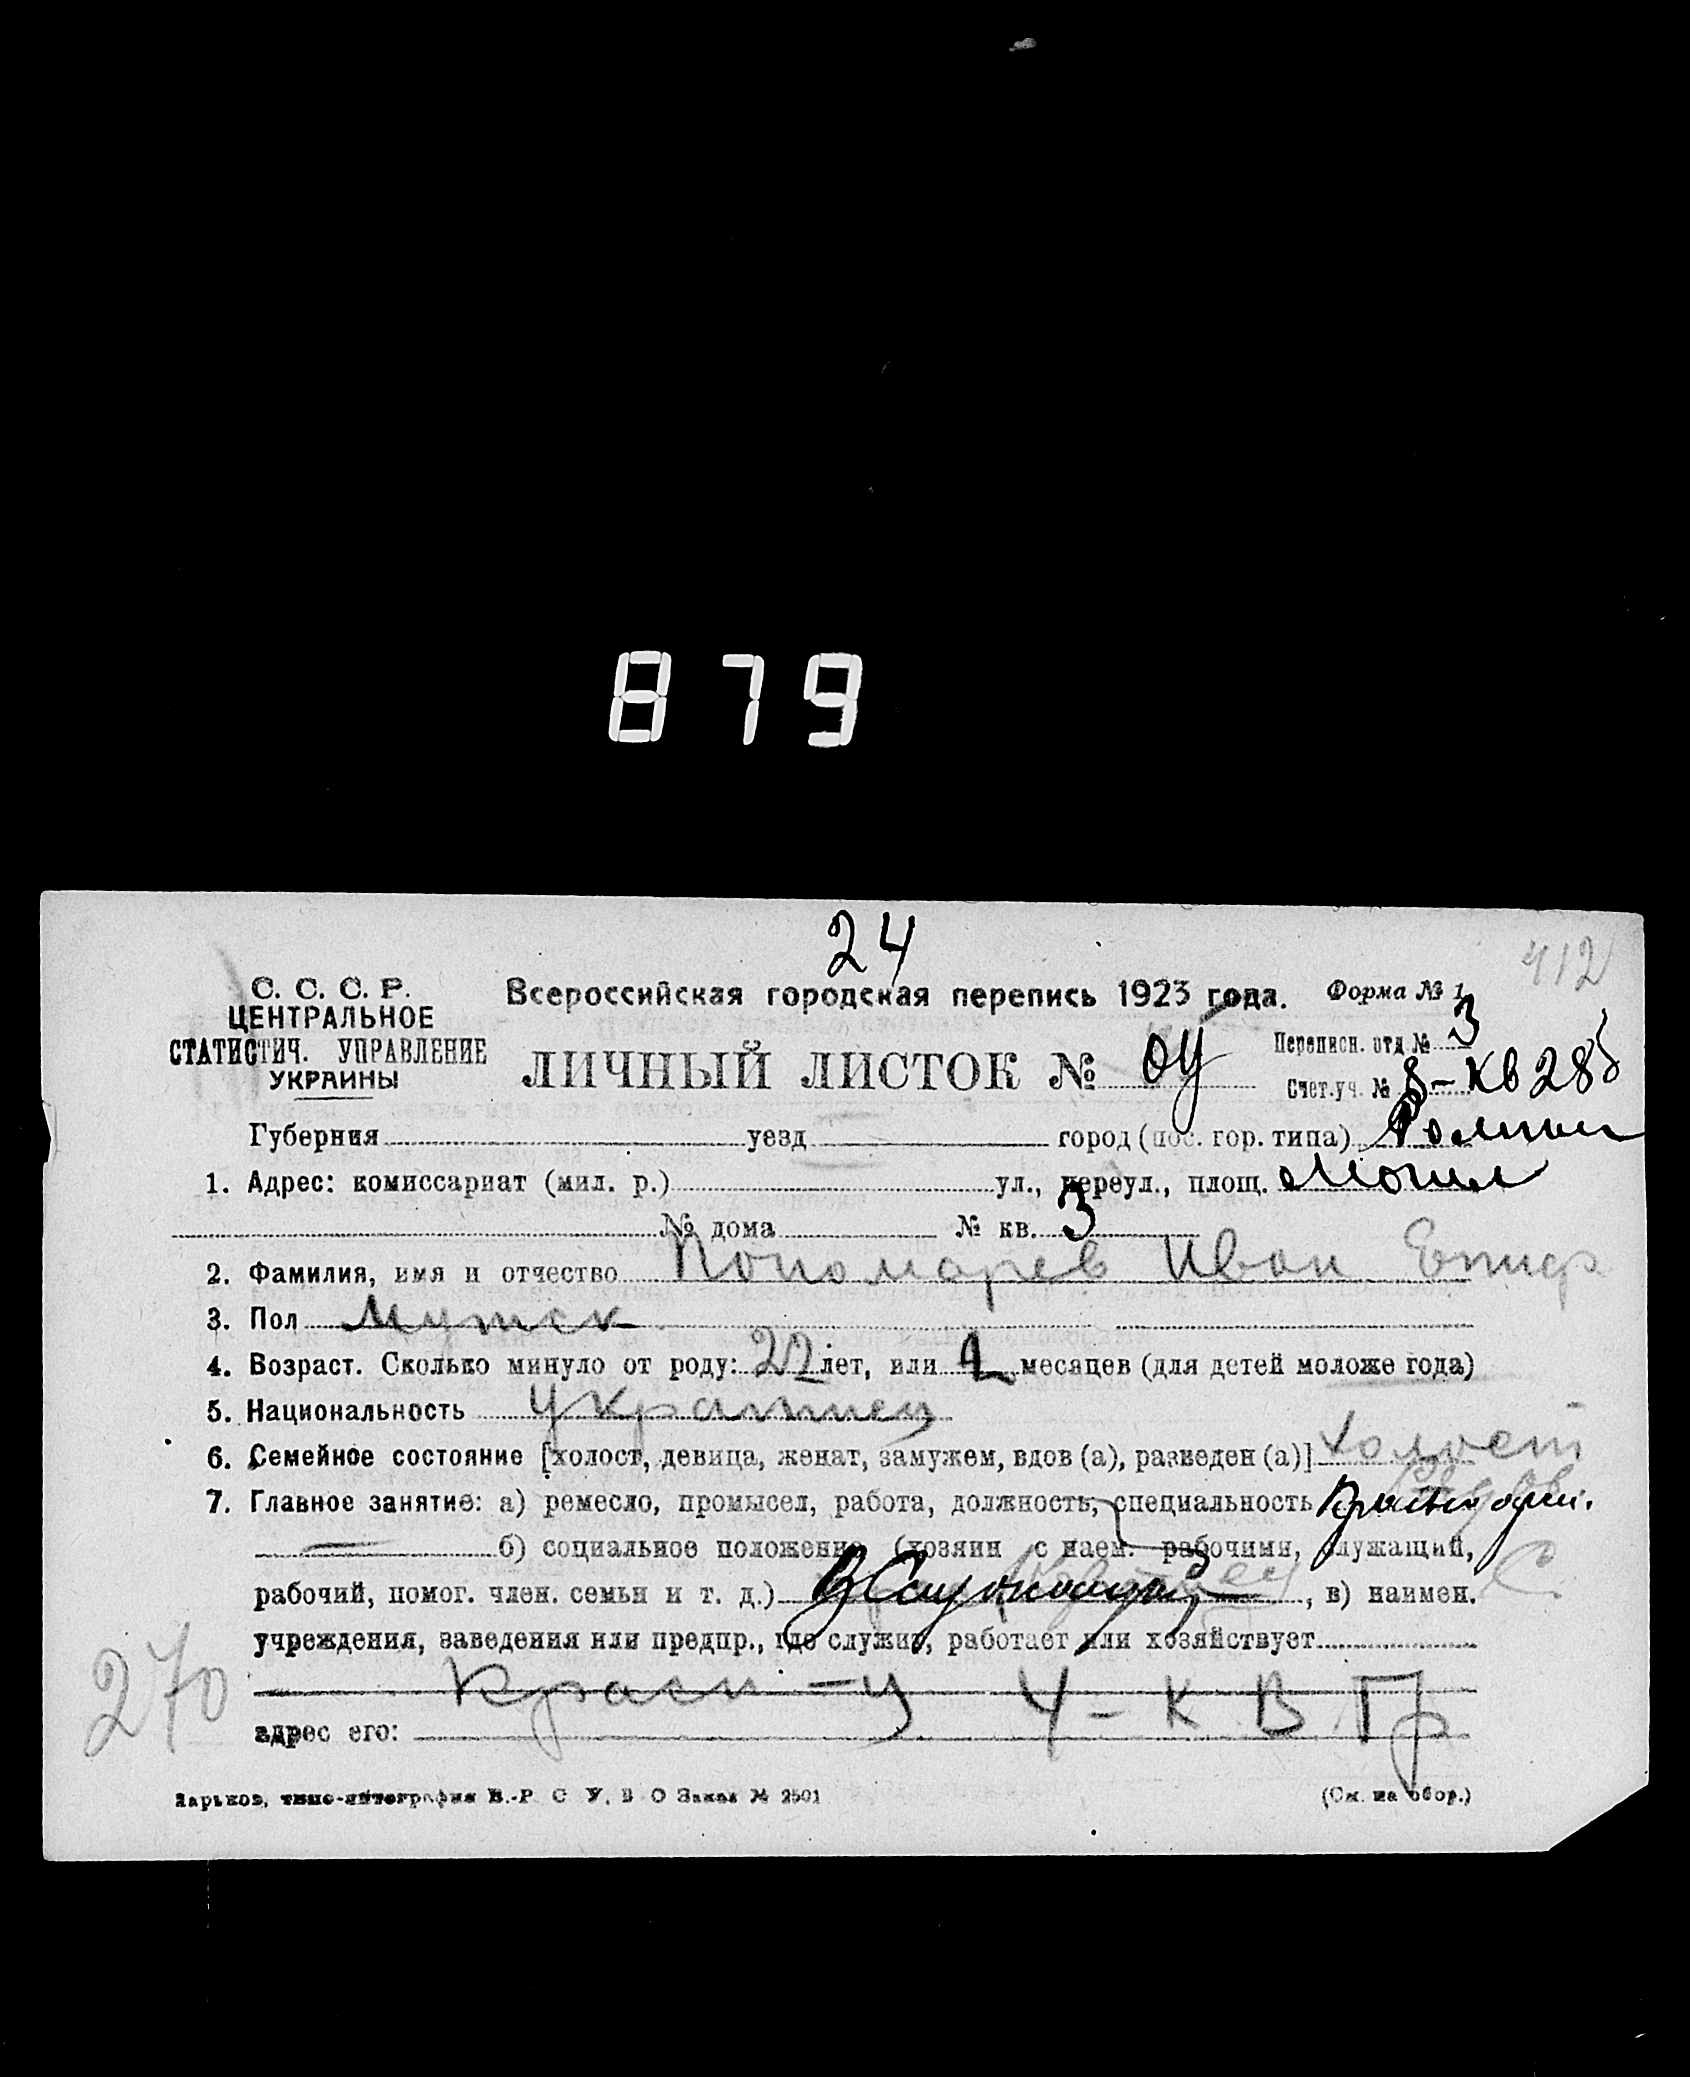 879
24
412
С. С. С. Р.
ЦЕНТРАЛЬНОЕ
СТАТИСТИЧ. УПРАВЛЕНИЕ
УКРАИНЫ
Всероссийская городская перепись 1923 года.
Форма № 1
ЛИЧНЫЙ ЛИСТОК №
Переписн. отд № 3
Счет.уч. № 8 - кв 285
Губерния уезд город (пос. гор. типа)
1. Адрес: комиссариат (мил. р.) ул., переул., площ.
№ дома № кв. 3
2. Фамилия, имя и отчество Пономарев Иван Епиф
3. Пол Мужск
4. Возраст. Сколько минуло от роду: 22 лет, или месяцев (для детей моложе года)
5. Национальность Украинец
6. Семейное состояние [холост, девица, женат, замужем, вдов (а), разведен (а)] холост
7. Главное занятие: а) ремесло, промысел, работа, должность, специальность
б) социальное положение (хозяин с наем. рабочими, служащий,
рабочий, помог. член. семьи и т. д.) , в) наимен.
учреждения, заведения или предпр., где служит, работает или хозяйствует
270
адрес его:
Харьков, типо-литография В.-Р С У, В О Заказ № 2501
(См. на обор.)